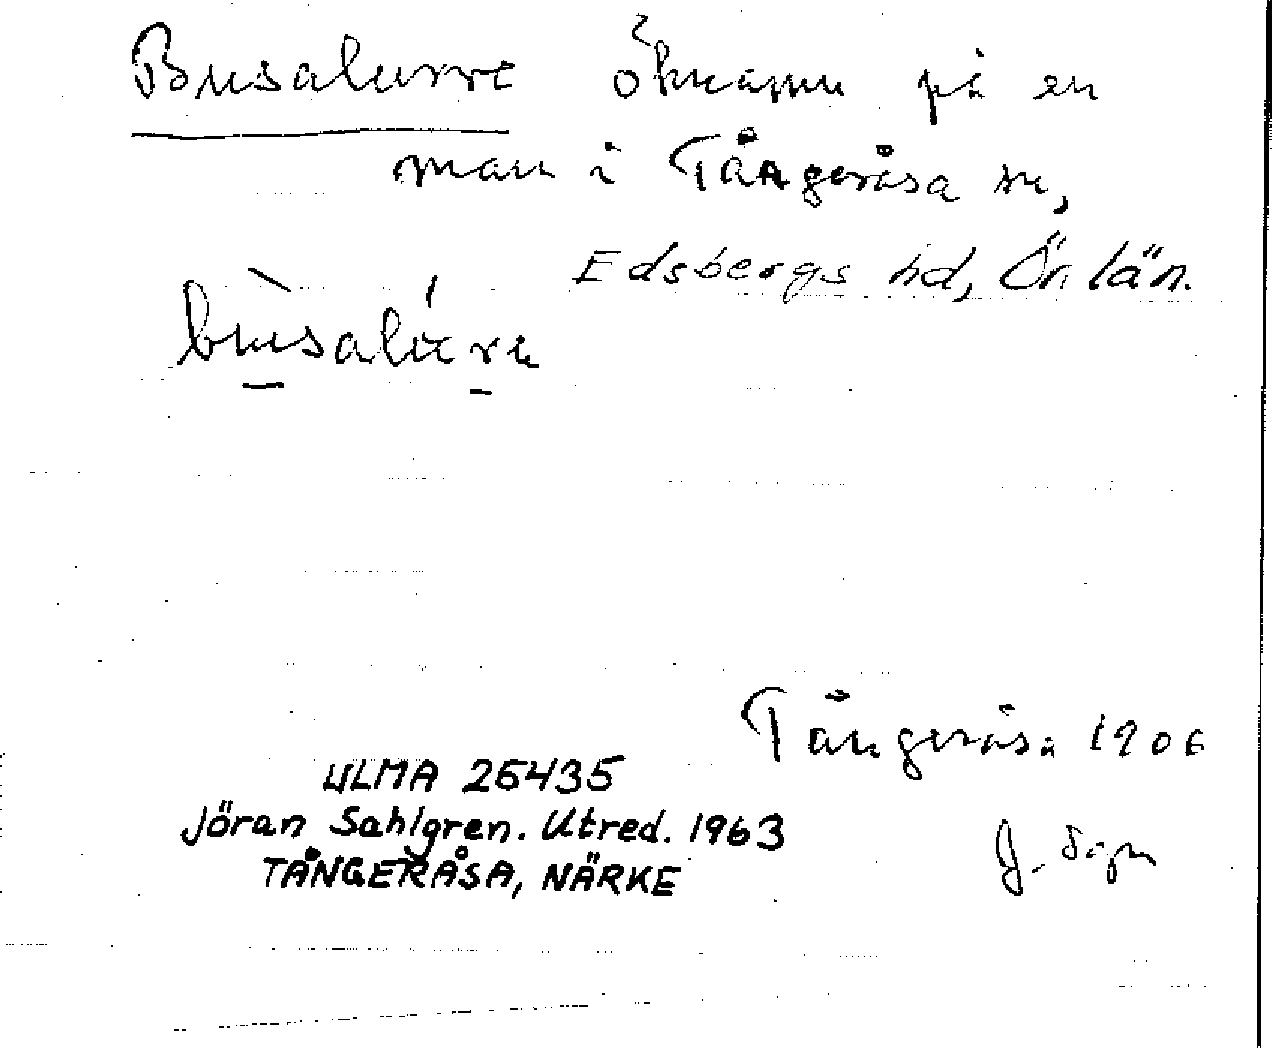 Busalurre öknamn på en
man i Tångeråsa sn,
Edsbergs hd, Ör. län.
bùsalúre
Tångeråsa 1906
ULMA 25435
Jöran Sahlgren. Utred. 1963
TÅNGERÅSA, NÄRKE
J. Sgn